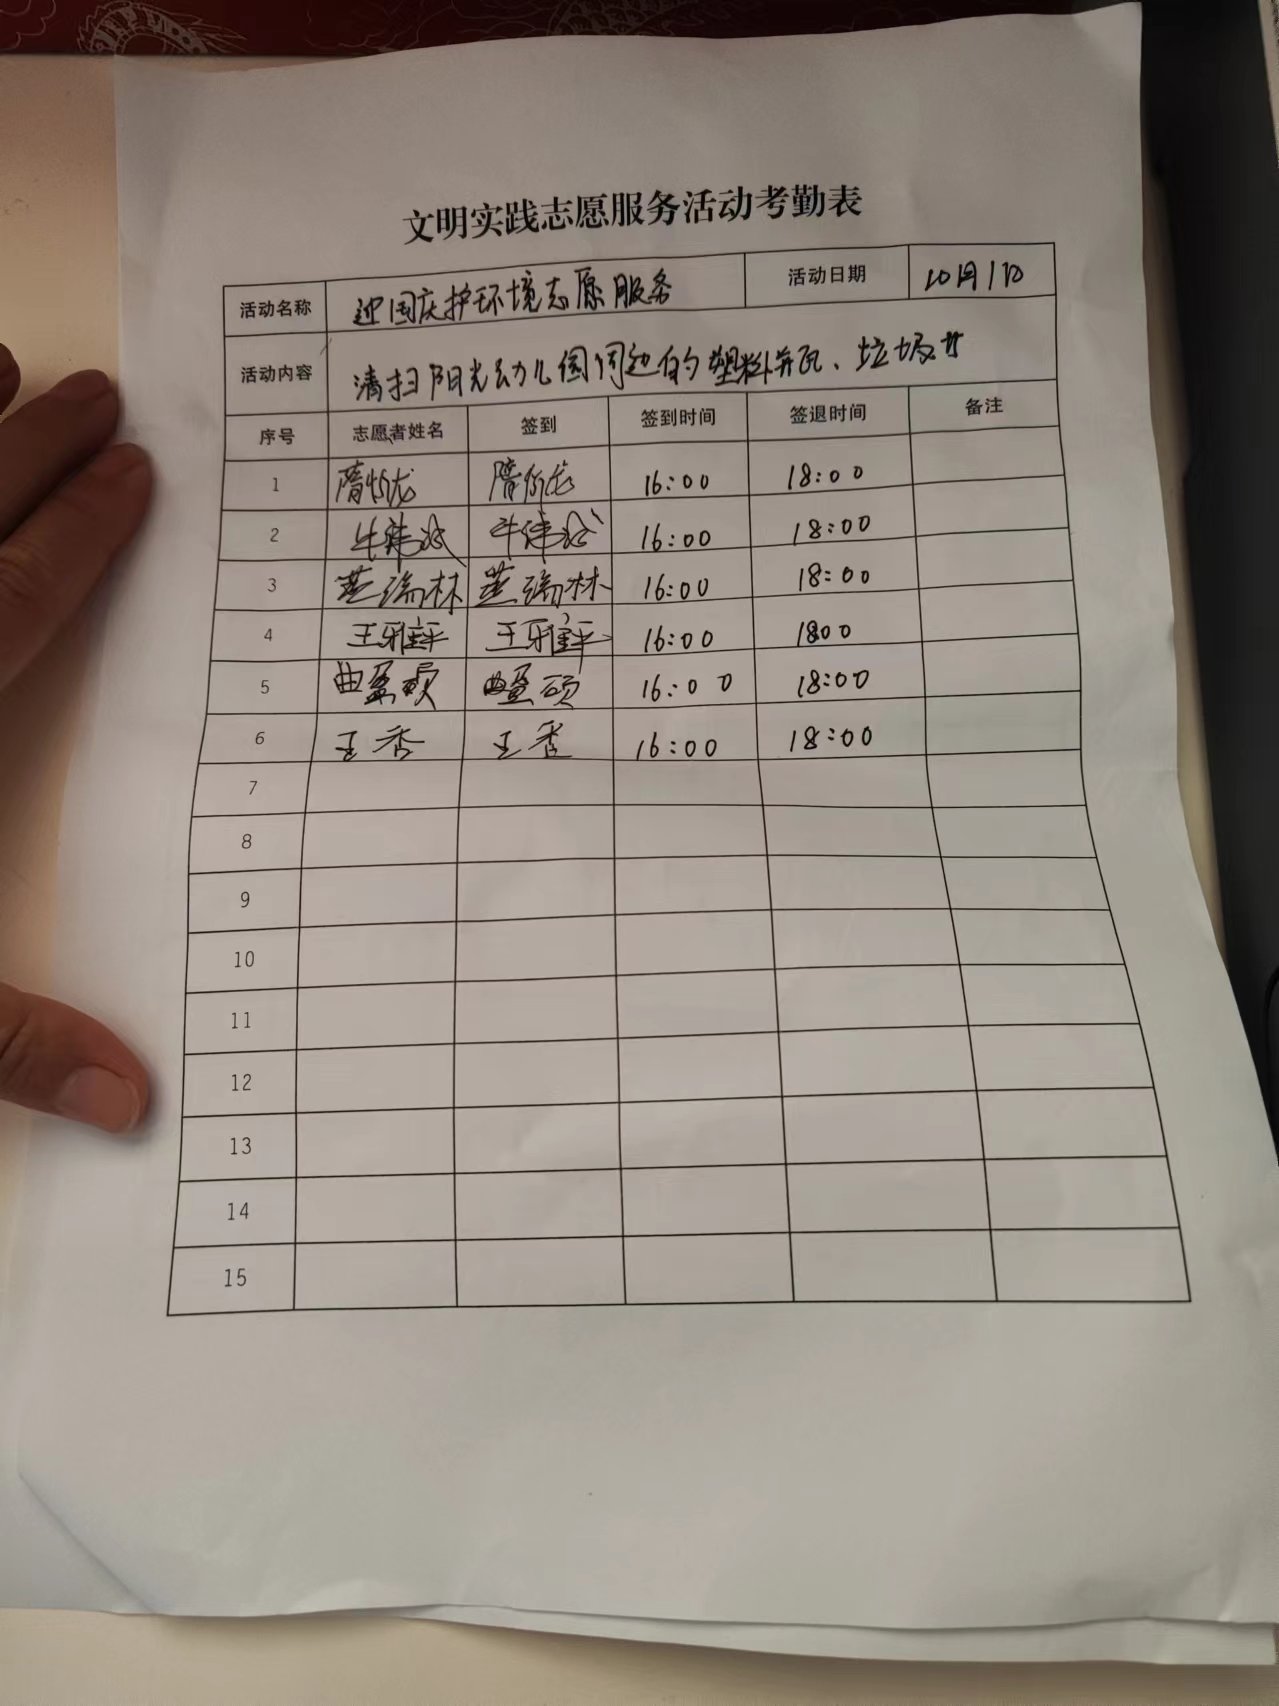 文明实践志愿服务活动考勤表
活动名称 迎国庆护环境志愿服务 活动日期 10月1日
活动内容 清扫阳光幼儿园周边的塑料瓶、垃圾
序号 志愿者姓名 签到 签到时间 签退时间 备注
1 16:00 18:00
2 16:00 18:00
3 瑞林 瑞林 16:00 18:00
4 王雅 王雅 16:00 1800
5 曲盈硕 曲盈硕 16:00 18:00
6 王香 王香 16:00 18:00
7
8
9
10
11
12
13
14
15